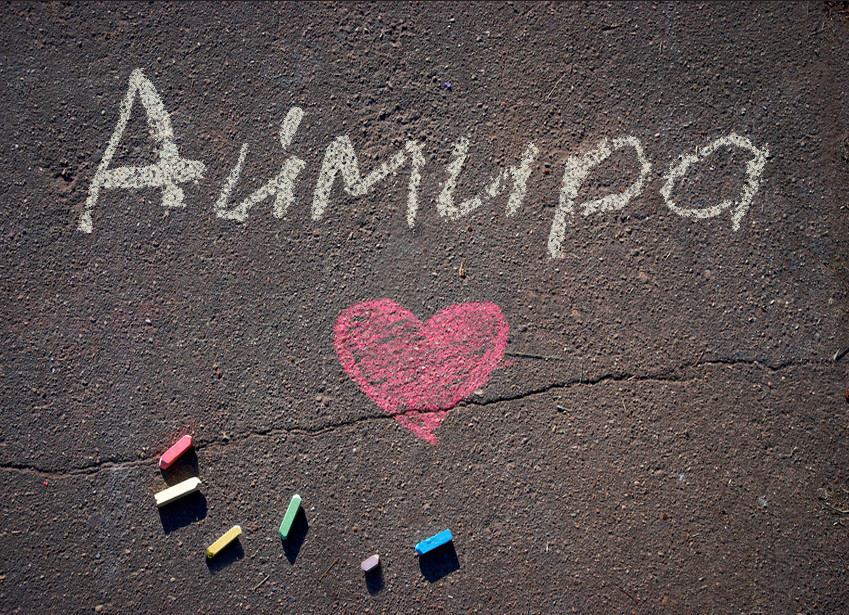 Аймира